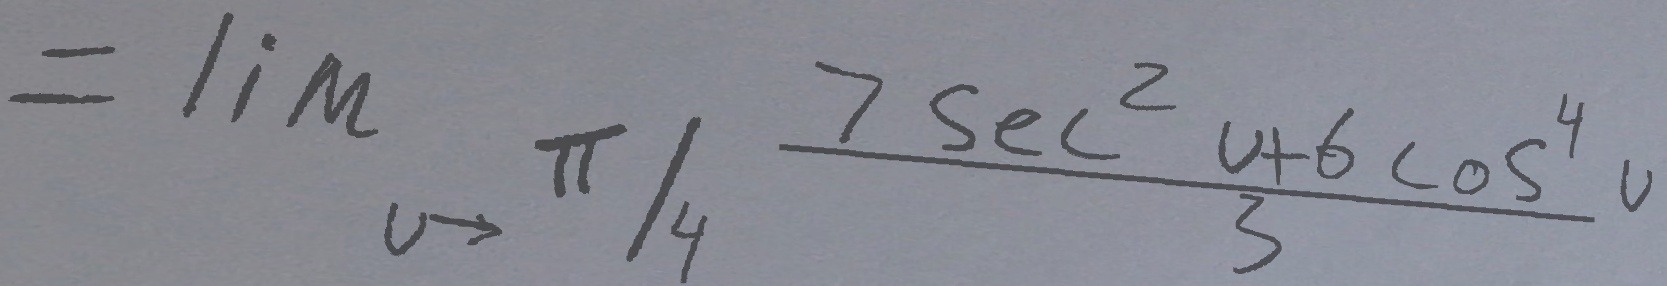 = \lim_{v \to \pi/4} \frac{7 \sec^2 v + 6 \cos^4 v}{3}